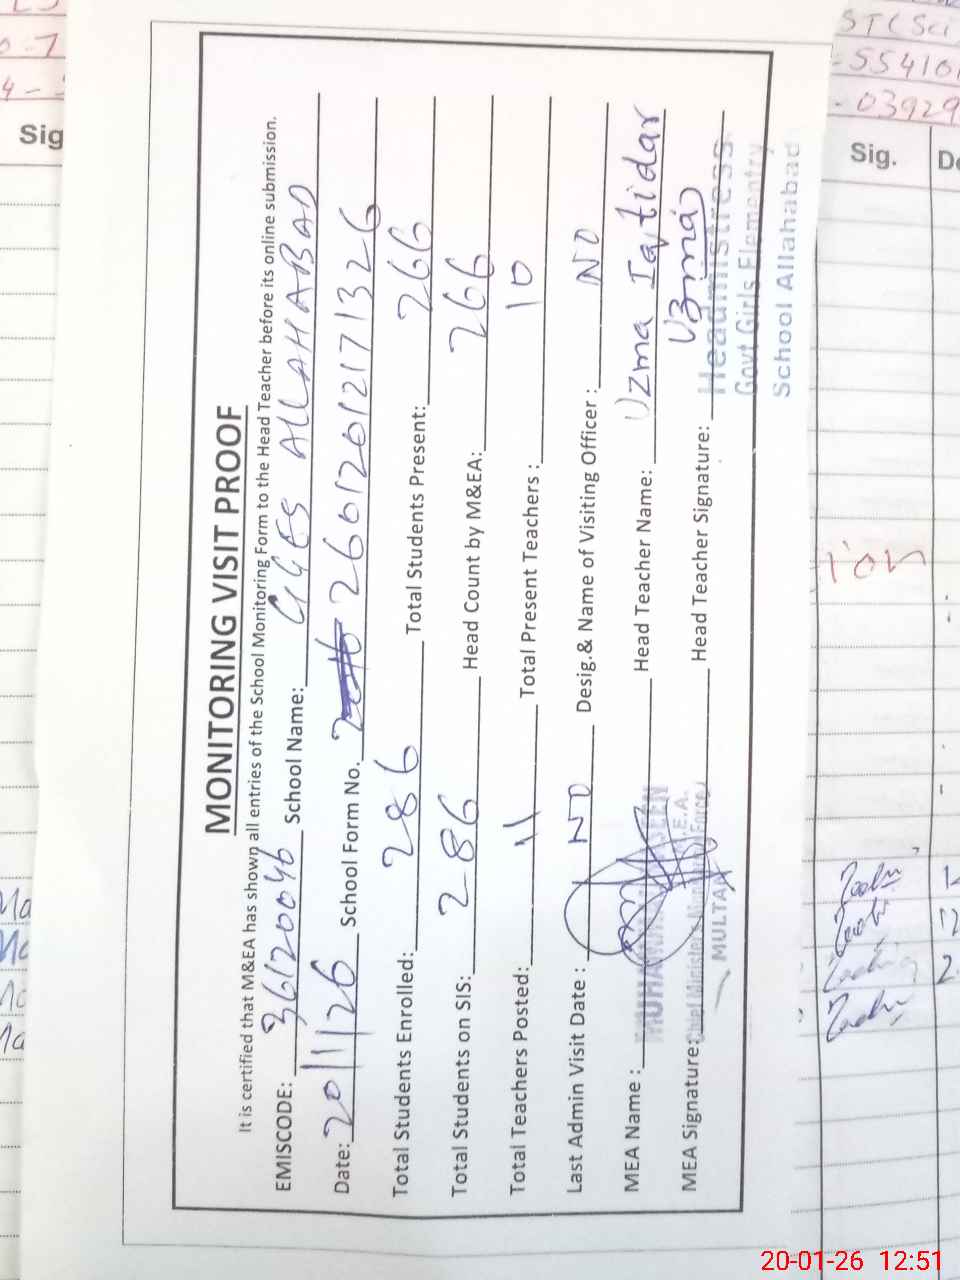 MONITORING VISIT PROOF
It is certified that M&EA has shown all entries of the School Monitoring Form to the Head Teacher before its online submission.
EMISCODE: 36120046 School Name: GGES ALLAHABAD
Date: 20/1/26 School Form No. 26012012171326
Total Students Enrolled: 286 Total Students Present: 266
Total Students on SIS: 286 Head Count by M&EA: 266
Total Teachers Posted: 11 Total Present Teachers : 10
Last Admin Visit Date : NO Desig.& Name of Visiting Officer : NO
MEA Name : Head Teacher Name: Uzma Iqtidar
MEA Signature: Head Teacher Signature: Uzma
MULTAN
Headmistress
Govt Girls Elementry
School Allahabad
Sig.
STC Sci
55410
03929
Sig.
20-01-26 12:51